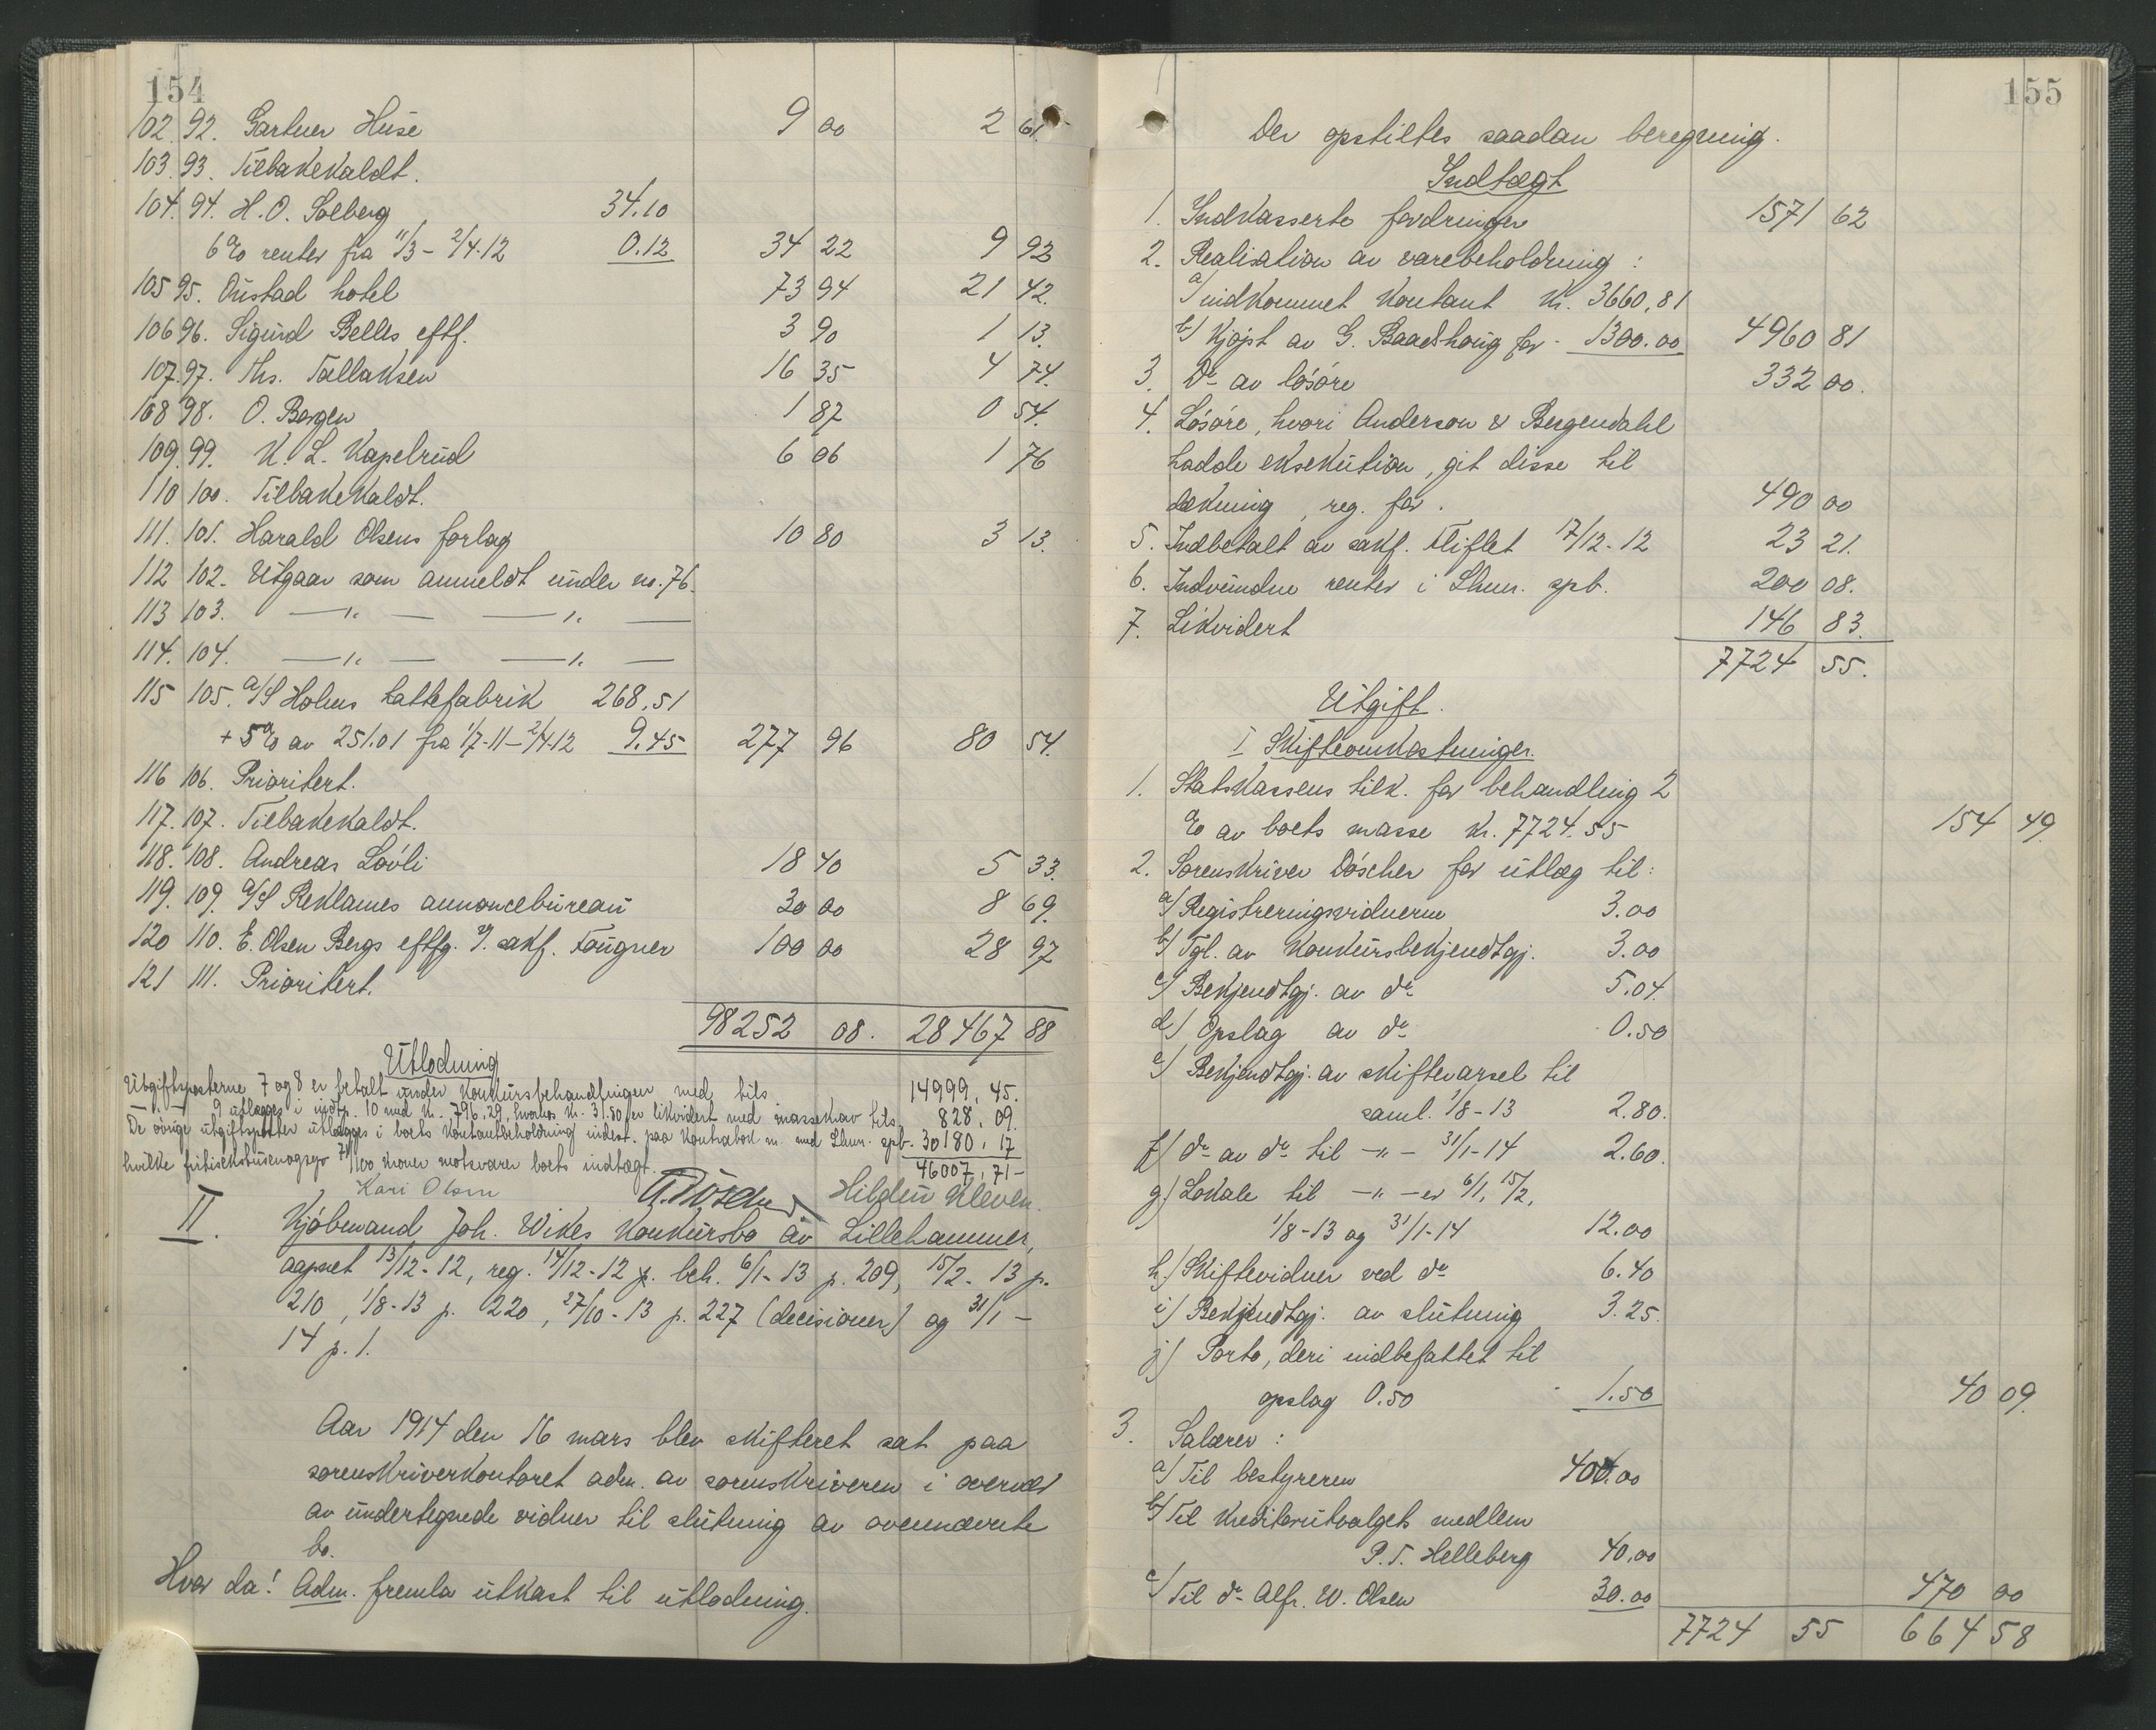 154
102 92. Gartner Huse 9 00 2 61.
103. 93. Tilbakekaldt.
104. 94. H. O. Solberg 34.10
6 % renter fra 11/3 - 2/4-12 0.12 34 22 9 92
105 95. Oustad hotel 73 94 21 42.
106 96. Sigurd Belles eftf. 3 90 1 13.
107. 97. Ths. Tallaksen 16 35 4 74.
108 98. O. Bergen 1 87 0 54.
109. 99. K. L. Kapelrud 6 06 1 76
110 100. Tilbakekaldt.
111. 101. Harald Olsens forlag 10 80 3 13.
112 102. Utgaar som anmeldt under no. 76.
113 103. —"— —"—
114. 104. —"— —"—
115 105. A/S Holens hattefabrik 268,51
+ 5 % av 251.01 fra 1/7-11 - 2/4-12 9.45 277 96 80 54.
116 106. Prioritert.
117. 107. Tilbakekaldt.
118. 108. Andreas Lövli 18 40 5 33.
119. 109. A/S Reklames annoncebureau 30 00 8 69.
120 110. E. Olsen Bergs eftfg. v. sakf. Fougner 100 00 28 97
121 111. Prioritert.
98252 08. 28467 88
Utlodning
Utgiftsposterne 7 og 8 er betalt under konkursbehandlingen med tils. 14999, 45.
—"— 9 utlægges i indtp. 10 med kr. 796,29, hvorhos kr. 31.80 er likvidert med massekrav tils. 828, 09.
De övrige utgiftsposter utlægges i boets kontantbeholdning indest. paa kontrabok m. med Lhmr. spb. 30180, 17
hvilke frtisekstusenogsyv 71/100 kroner motsvarer boets indtægt. 46007, 71-
Kari Olsen A. Döscher Hildur Kleven.
II. Kjöbmand Joh. Wikes konkursbo av Lillehammer,
aapnet 13/12-12, reg. 14/12-12 p. beh. 6/1-13 p. 209, 15/2-13 p.
210, 1/8-13 p. 220, 27/10-13 p. 227 (decisioner) og 31/1-
14 p. 1.
Aar 1914 den 16 mars blev skifteret sat paa
sorenskriverkontoret adm. av sorenskriveren i overvær
av undertegnede vidner til slutning av ovennævnte
bo.
Hvor da! Adm. fremla utkast til utlodning.
155
Der opstiltes saadan beregning.
Indtægt
1. Indkasserte fordringer 1571 62
2. Realisation av varebeholdning:
a) indkommet kontant kr. 3660,81
b) kjøpt av G. Baadshaug for - 1300.00 4960 81
3. Do av lösöre 332 00.
4. Lösöre, hvori Anderson & Bergendahl
hadde eksekution, git disse til
dækning, reg. for. 490 00
5. Indbetalt av sakf. Fliflet 17/12-12 23 21.
6. Indvundne renter i Lhmr. spb. 200 08.
7. Likvidert 146 83.
7724 55.
Utgift.
I Skifteomkostninger.
1. Statskassens tilk. for behandling 2
% av boets masse kr. 7724.55 154 49.
2. Sorenskriver Döscher for utlæg til:
a) Registreringsvidnerne 3.00
b) Tgl. av konkursbekjendtgj. 3.00
c) Bekjendtgj. av do 5.04.
d) Opslag av do 0.50
e) Bekjendtgj. av skiftevarsel til
saml. 1/8-13 2.80.
f) do av do til —"— 31/1-14 2.60.
g) Lokale til —"—er 6/1, 15/2,
1/8-13 og 31/1-14 12.00
h) Skiftevidner ved do 6.40
i) Bekjendtgj. av slutning 3.25.
j) Porto, deri indbefattet til
opslag 0.50 1.50 40 09.
3. Salærer:
a) Til bestyreren 400.00
b) Til kreditorutvalgets medlem
P. T. Helleberg 40,00
c) Til do Alfr. W. Olsen 30.00 470 00
7724 55 664 58